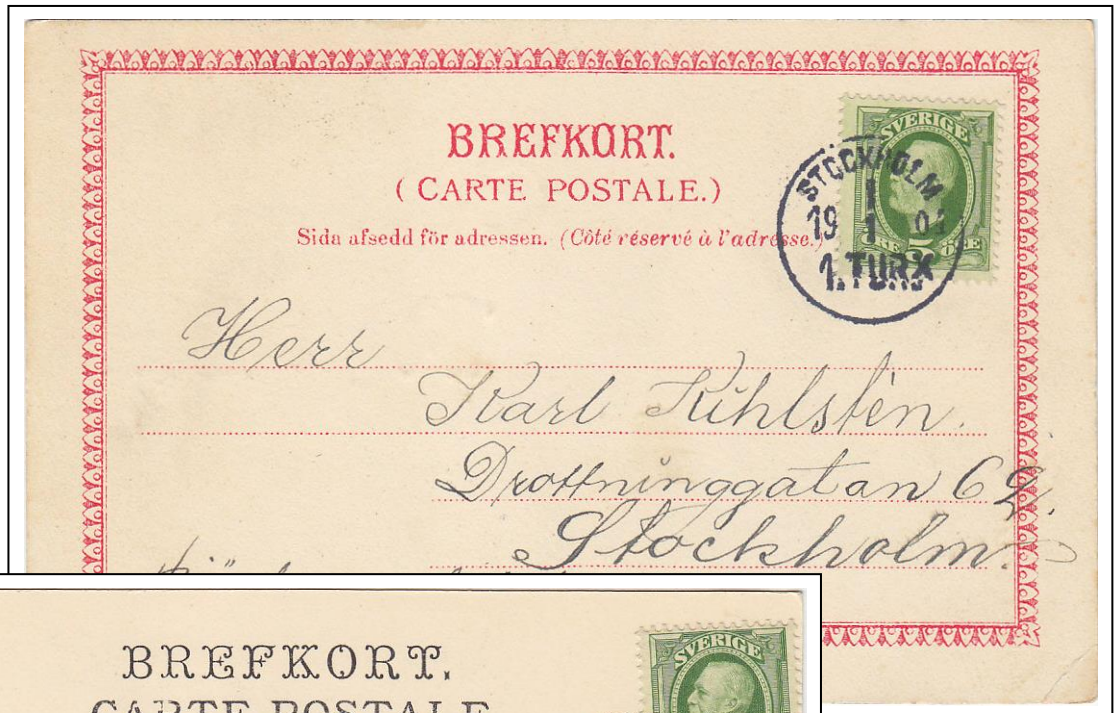 BREFKORT.
(CARTE POSTALE.)
Sida afsedd för adressen. (Côté réservé à l'adresse.)
SVERIGE
5
ÖRE ÖRE
STOCKHOLM
1
19 1 04
1.TUR.
Herr
Karl Kihlstén.
Drottninggatan 62.
Stockholm.
BREFKORT.
CARTE POSTALE
SVERIGE